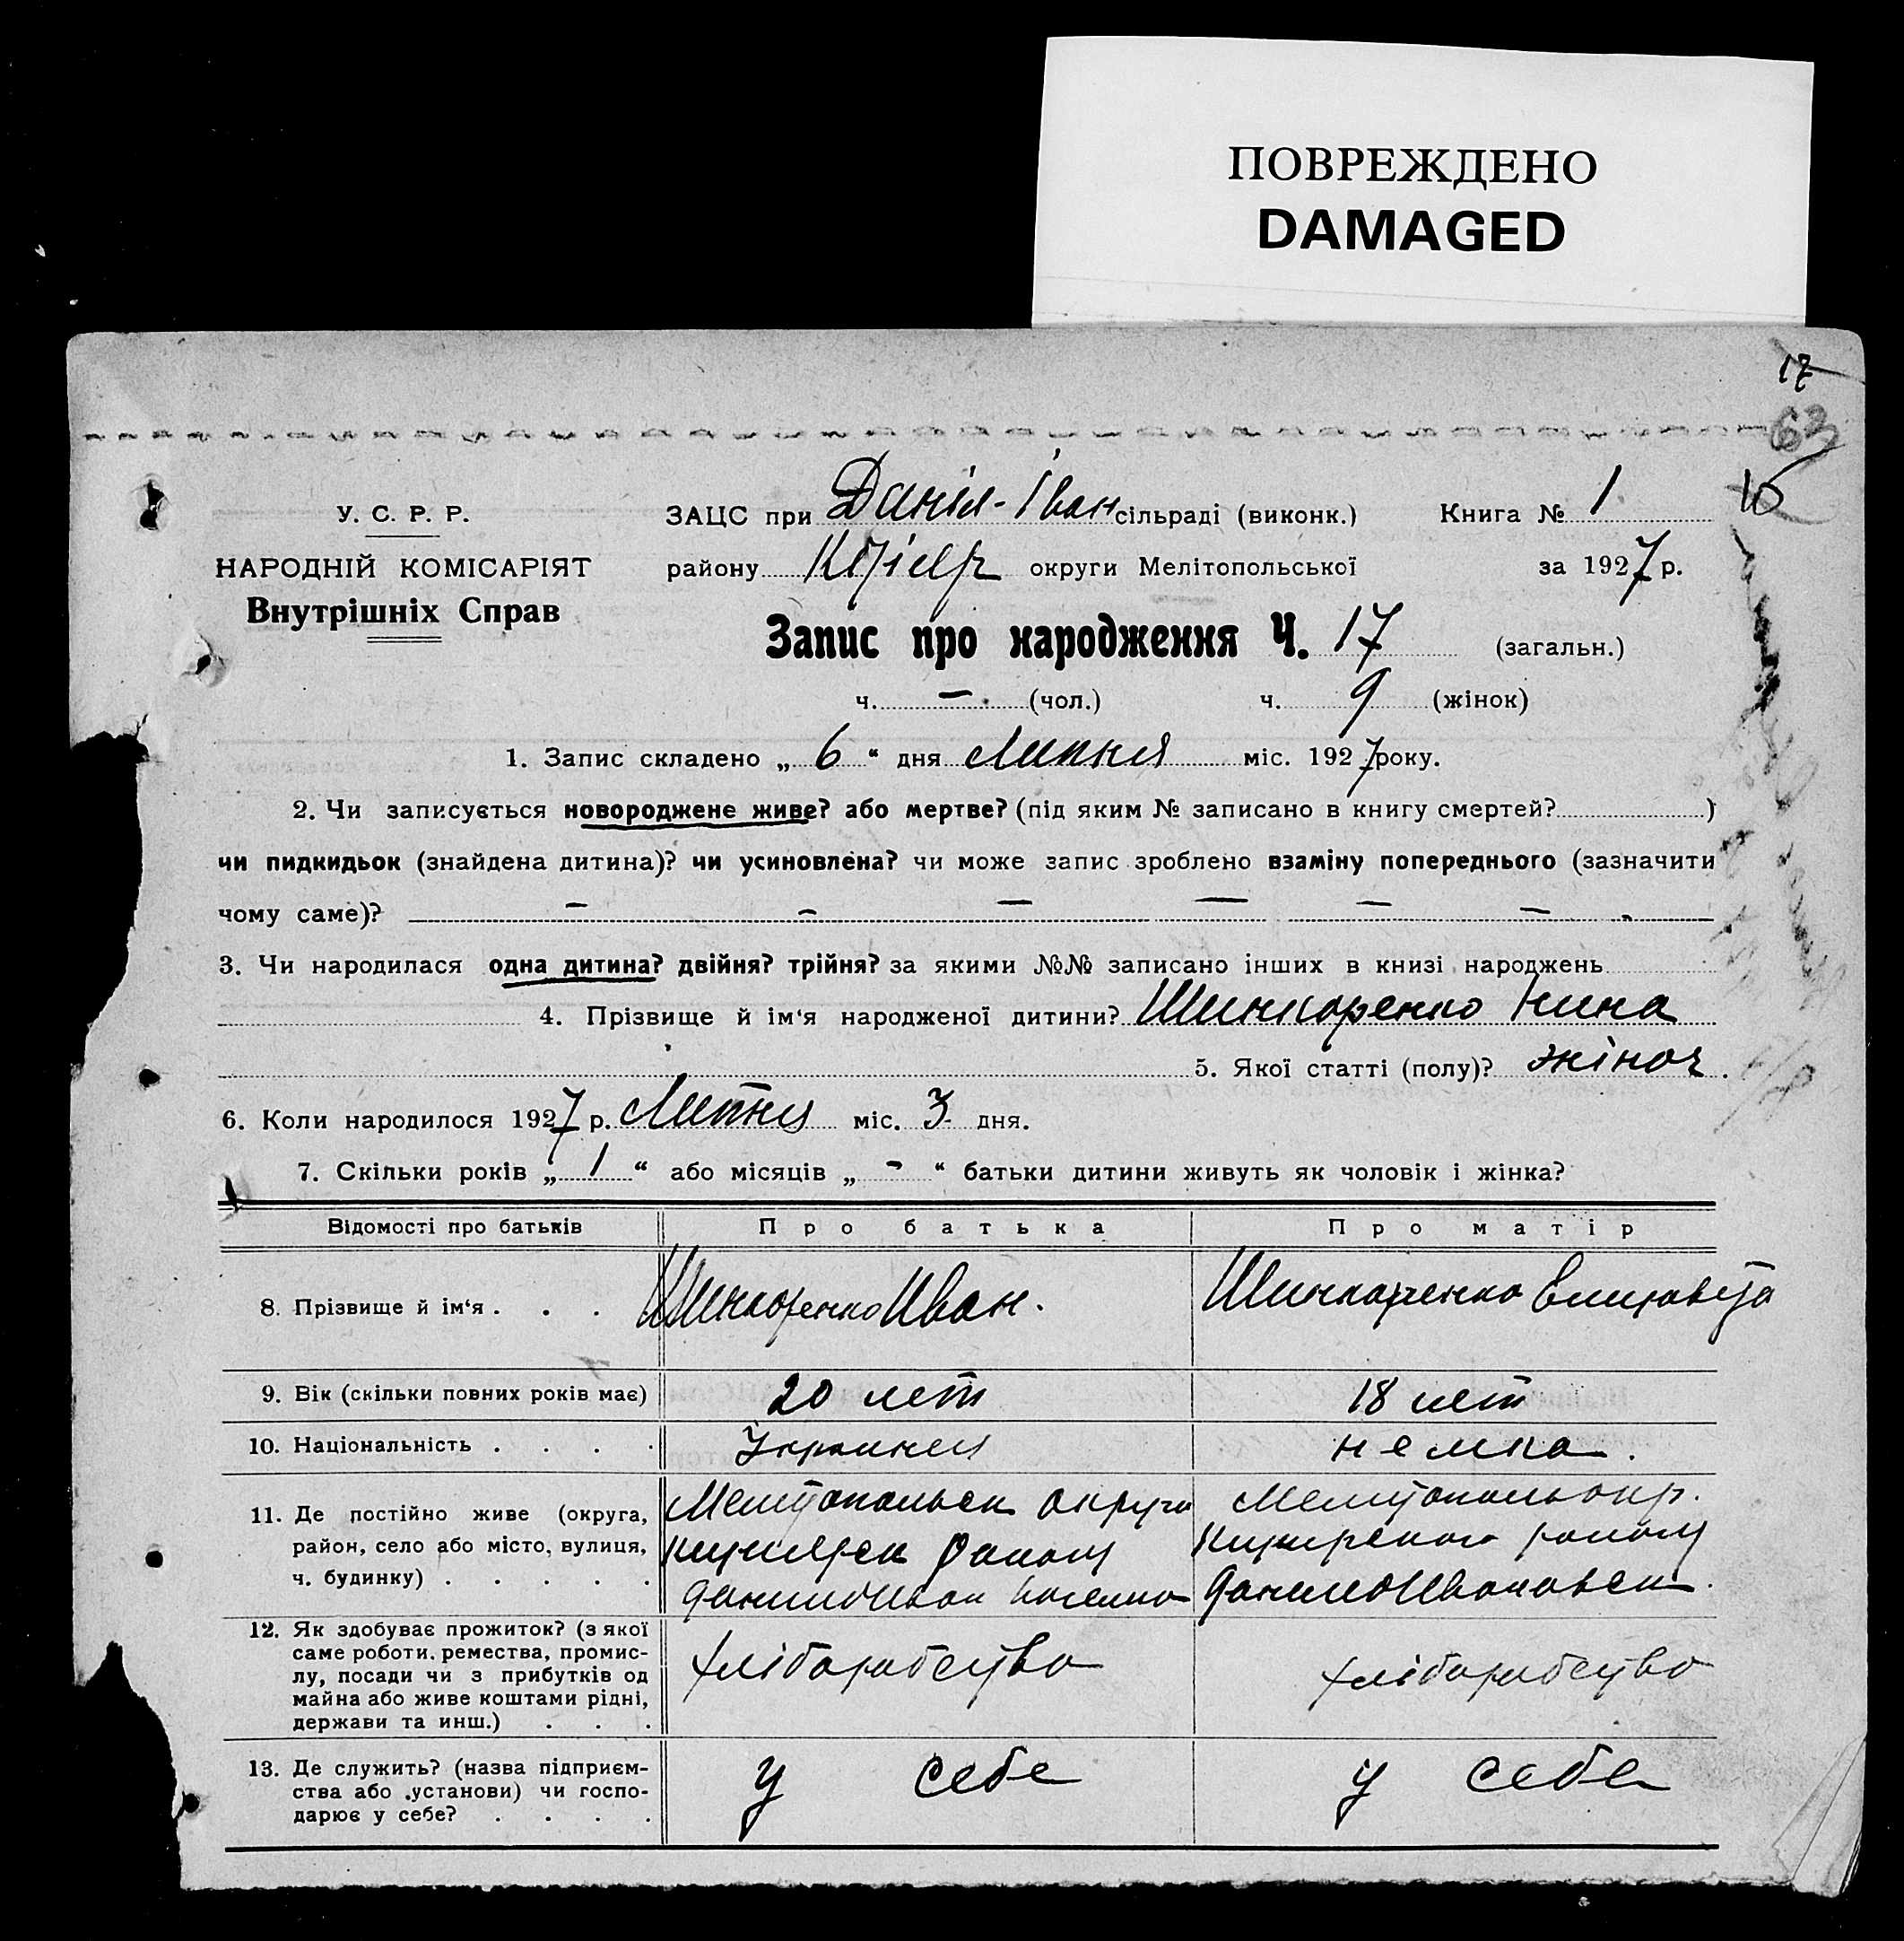 ПОВРЕЖДЕНО
DAMAGED
17
63
16
У. С. Р. Р.
НАРОДНІЙ КОМІСАРІЯТ
Внутрішніх Справ
ЗАЦС при Даніл-Іван сільраді (виконк.) Книга № 1
району округи Мелітопольської за 1927 р.
Запис про народження Ч. 17 (загальн.)
ч. – (чол.) ч. 9 (жінок)
1. Запис складено „ 6 “ дня Липня міс. 1927 року.
2. Чи записується новороджене живе? або мертве? (під яким № записано в книгу смертей? )
чи пидкидьок (знайдена дитина)? чи усиновлена? чи може запис зроблено взаміну попереднього (зазначити
чому саме)? – – – – – –
3. Чи народилася одна дитина? двійня? трійня? за якими №№ записано інших в книзі народжень
4. Прізвище й ім‘я народженої дитини? Шинкоренко Нина
5. Якої статті (полу)? жіноч.
6. Коли народилося 1927 р. Липня міс. 3 дня.
7. Скільки років „ 1 “ або місяців „ - “ батьки дитини живуть як чоловік і жінка?
Відомості про батьків Про батька Про матір
8. Прізвище й ім‘я . . . Шинкоренко Иван. Шинкоренко Елизавета
9. Вік (скільки повних років має) 20 лет 18 лет
10. Національність . . . . немка.
11. Де постійно живе (округа,
район, село або місто, вулиця,
ч. будинку) . . . . .
Мелитопольск округи
района
Мелитополь окр.
района
12. Як здобуває прожиток? (з якої
саме роботи, ремества, промис-
лу, посади чи з прибутків од
майна або живе коштами рідні,
держави та инш.) . . .
хліборобство хліборобство
13. Де служить? (назва підприєм-
ства або установи) чи госпо-
дарює у себе? . . . .
у себе у себе